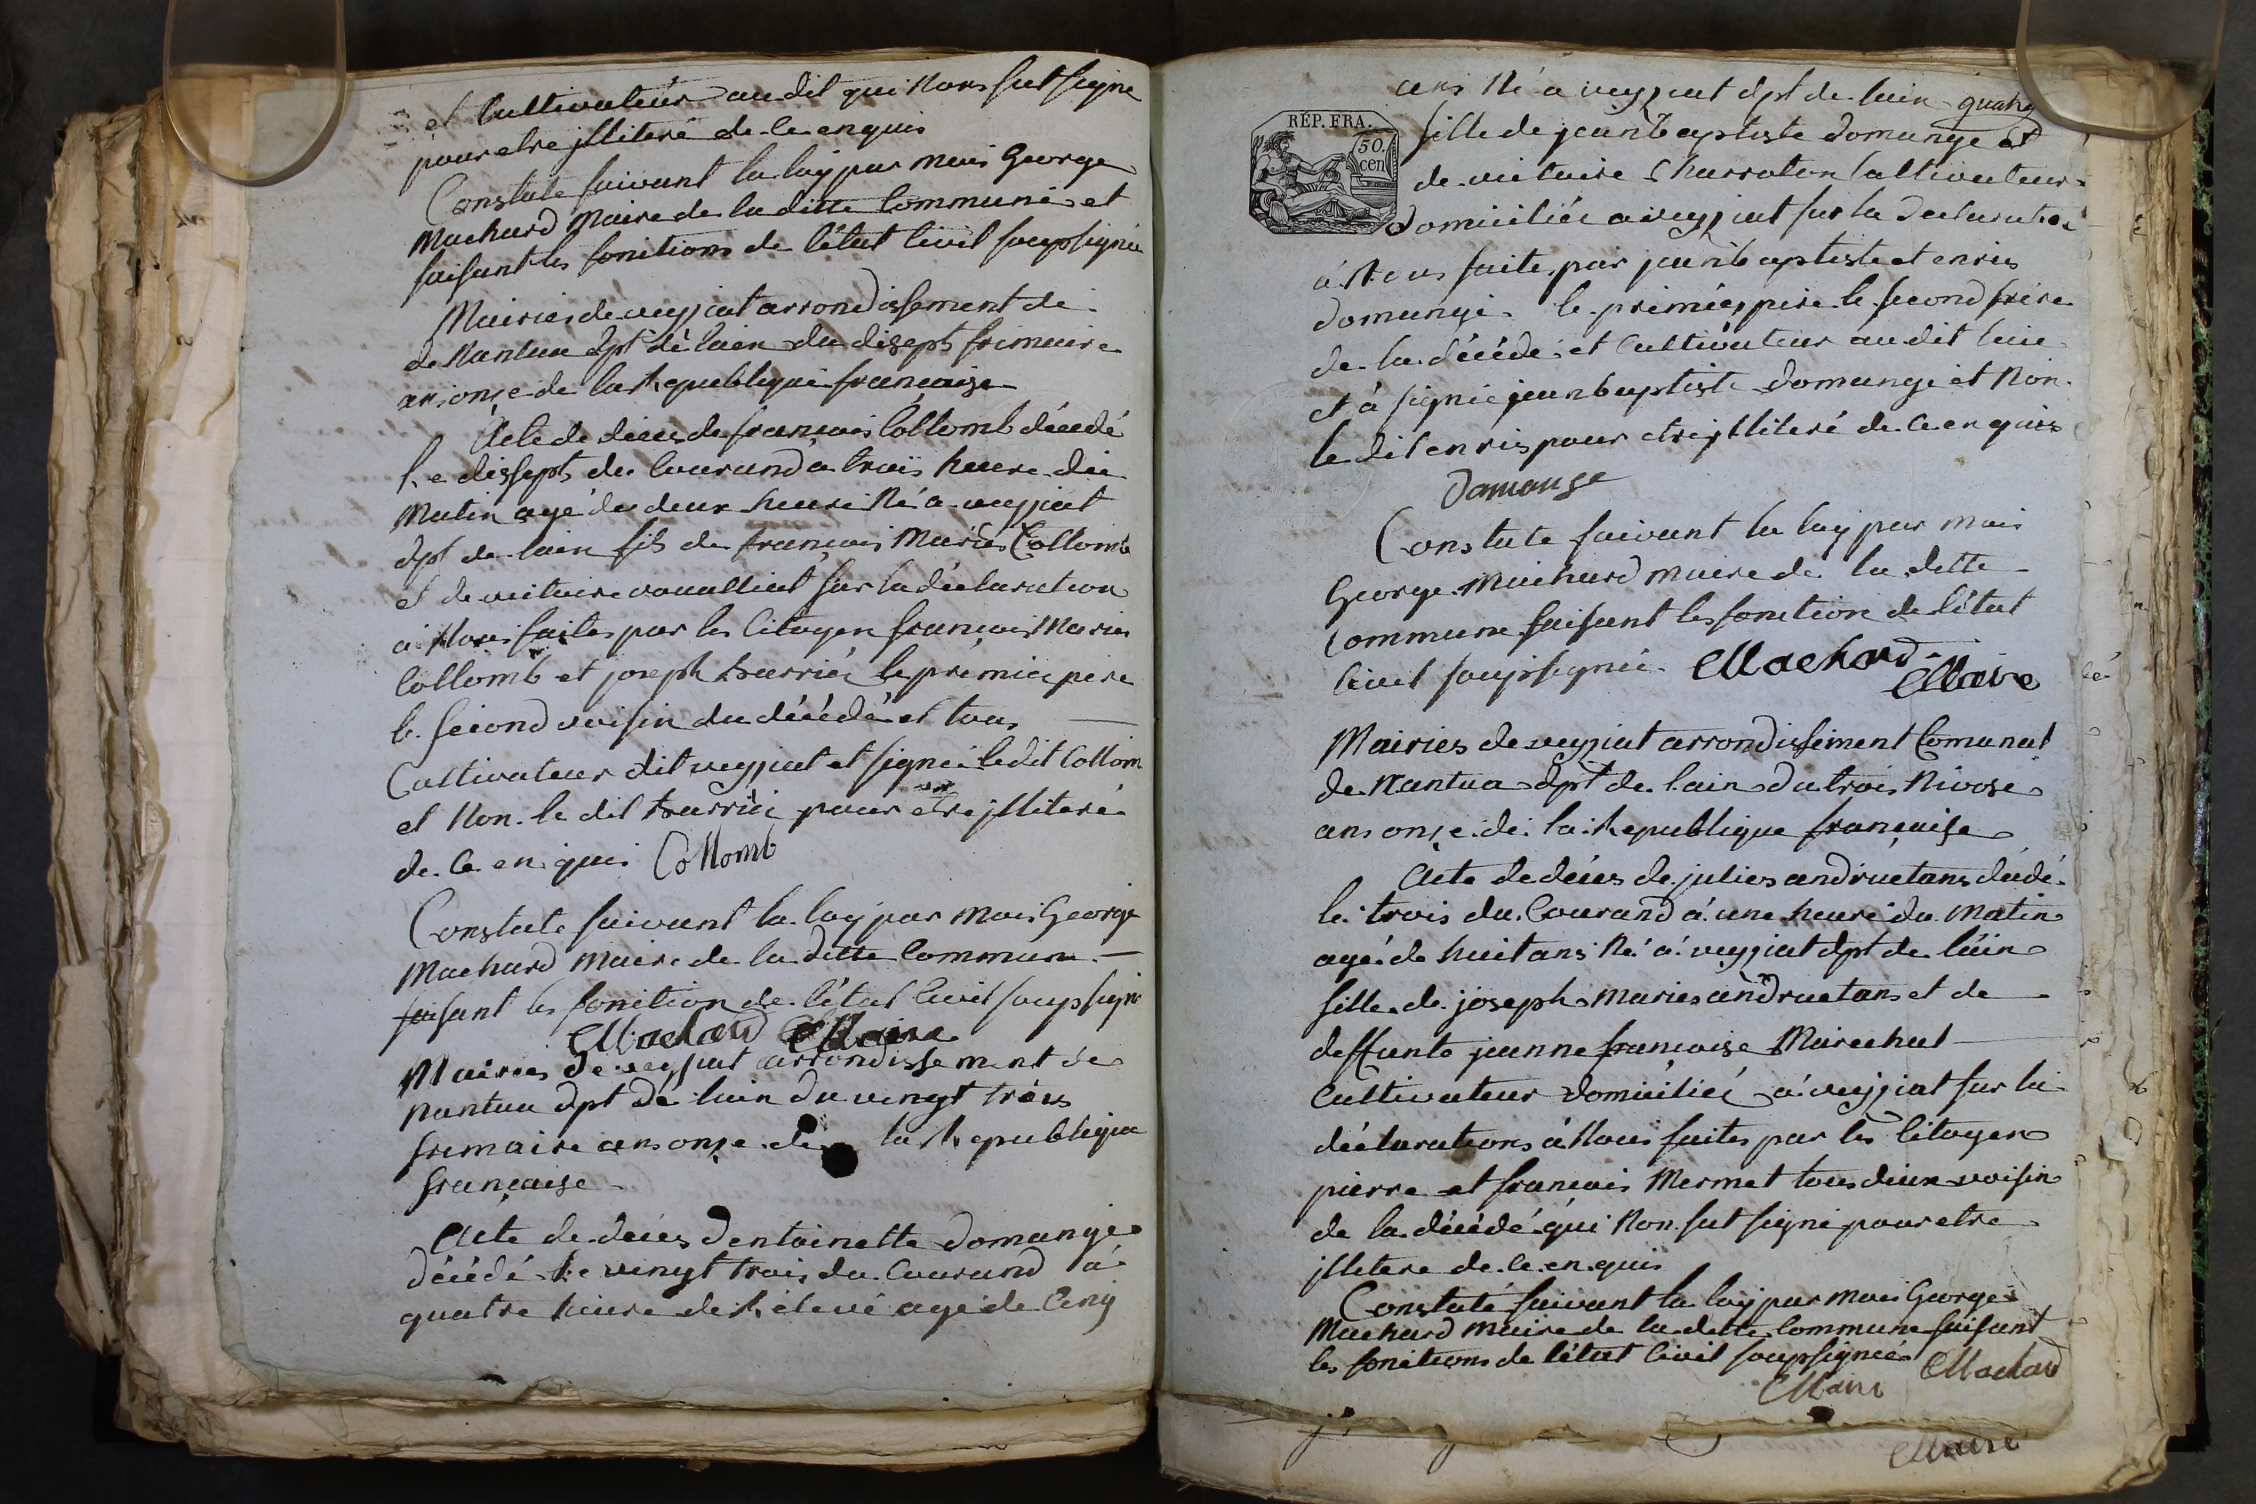 et Cultivateur audit qui Nons sut signe
pour etre jlliteré de ce enquis
Constate suivant la loy par mois George
Machard Maire de la ditte Commune et
faisant les fonitions de l'état Civil soupsignée
Mairies de veyziat arrondissement de
de Nantua dpt de lain du disepts frimaire
ans onze de la Republique française
Acte de déces de françois Collomb décedé
Le dissepts du Courand a trois heure du
Matin agé de deux heure Né a veyziat
dpt de lain fils de françois Maries Collomb
et de victoire sur la déclaration
a Nous faites par les Citoyen françois Maries
Collomb et joseph le prémier pere
le second voisin du décédé et tous
Cultivateur dit veyziat et signé ledit Collom
et Non le dit pour etre jlliteré
de Ce en quis Collomb
Constate suivant la loy par mois George
Machard Maire de la ditte Commune
faisant les fonition de l'état Civil soupsigné
Machard Maire
Mairies de veyziat arrondissement de
nantua dpt de lain du vingt trois
frimaire ans onze de la Republique
française
Acte de déces dentoinette domange
décédé Le vingt trois du Courand à
quatre heure de Relevé agé de Cinq
ans Né a veyziat dpt de lain
RÉP. FRA.
50.
cen
fille de jean Baptiste domange et
de victoire Charraton Caltivateur
domiciliée a veyziat sur la declaration
à Nous faite par jean baptiste et enris
domange le prémier pere le second frere
de la décédé et Cultivateur audit lieu
et à signée jean baptiste domange et Non
le dit enris pour etre jlliteré de Ce en quis
Domange
Constate suivant la loy par mois
George Machard maire de la ditte
Commune faisant les fonction de l'état
Civil soupssignée Machard
Maire
Mairies de veyziat arrondissement Comunal
de Nantua dpt de lain du trois Nivose
ans onze de la Republique française
Acte de déces de julies andruetans dédé
le trois du Courand à une heure du Matin
agé de huit ans Né à veyziat dpt de lain
fille de joseph Maries andruetans et de
deffunte jeanne françoise Marechal
Cultivateur domiciliée à veyziat sur la
déclarations à Nous faites par les Citoyen
pierre et françois Mermet tous deux voisin
de la décédé qui Non sut signé pour etre
jlletere de ce en quis
Constaté suivant la loy par mois George
Machard maire de la ditte Commune faisant
les fonitions de l'état Civil soupsignée Machard
Maire
Maire